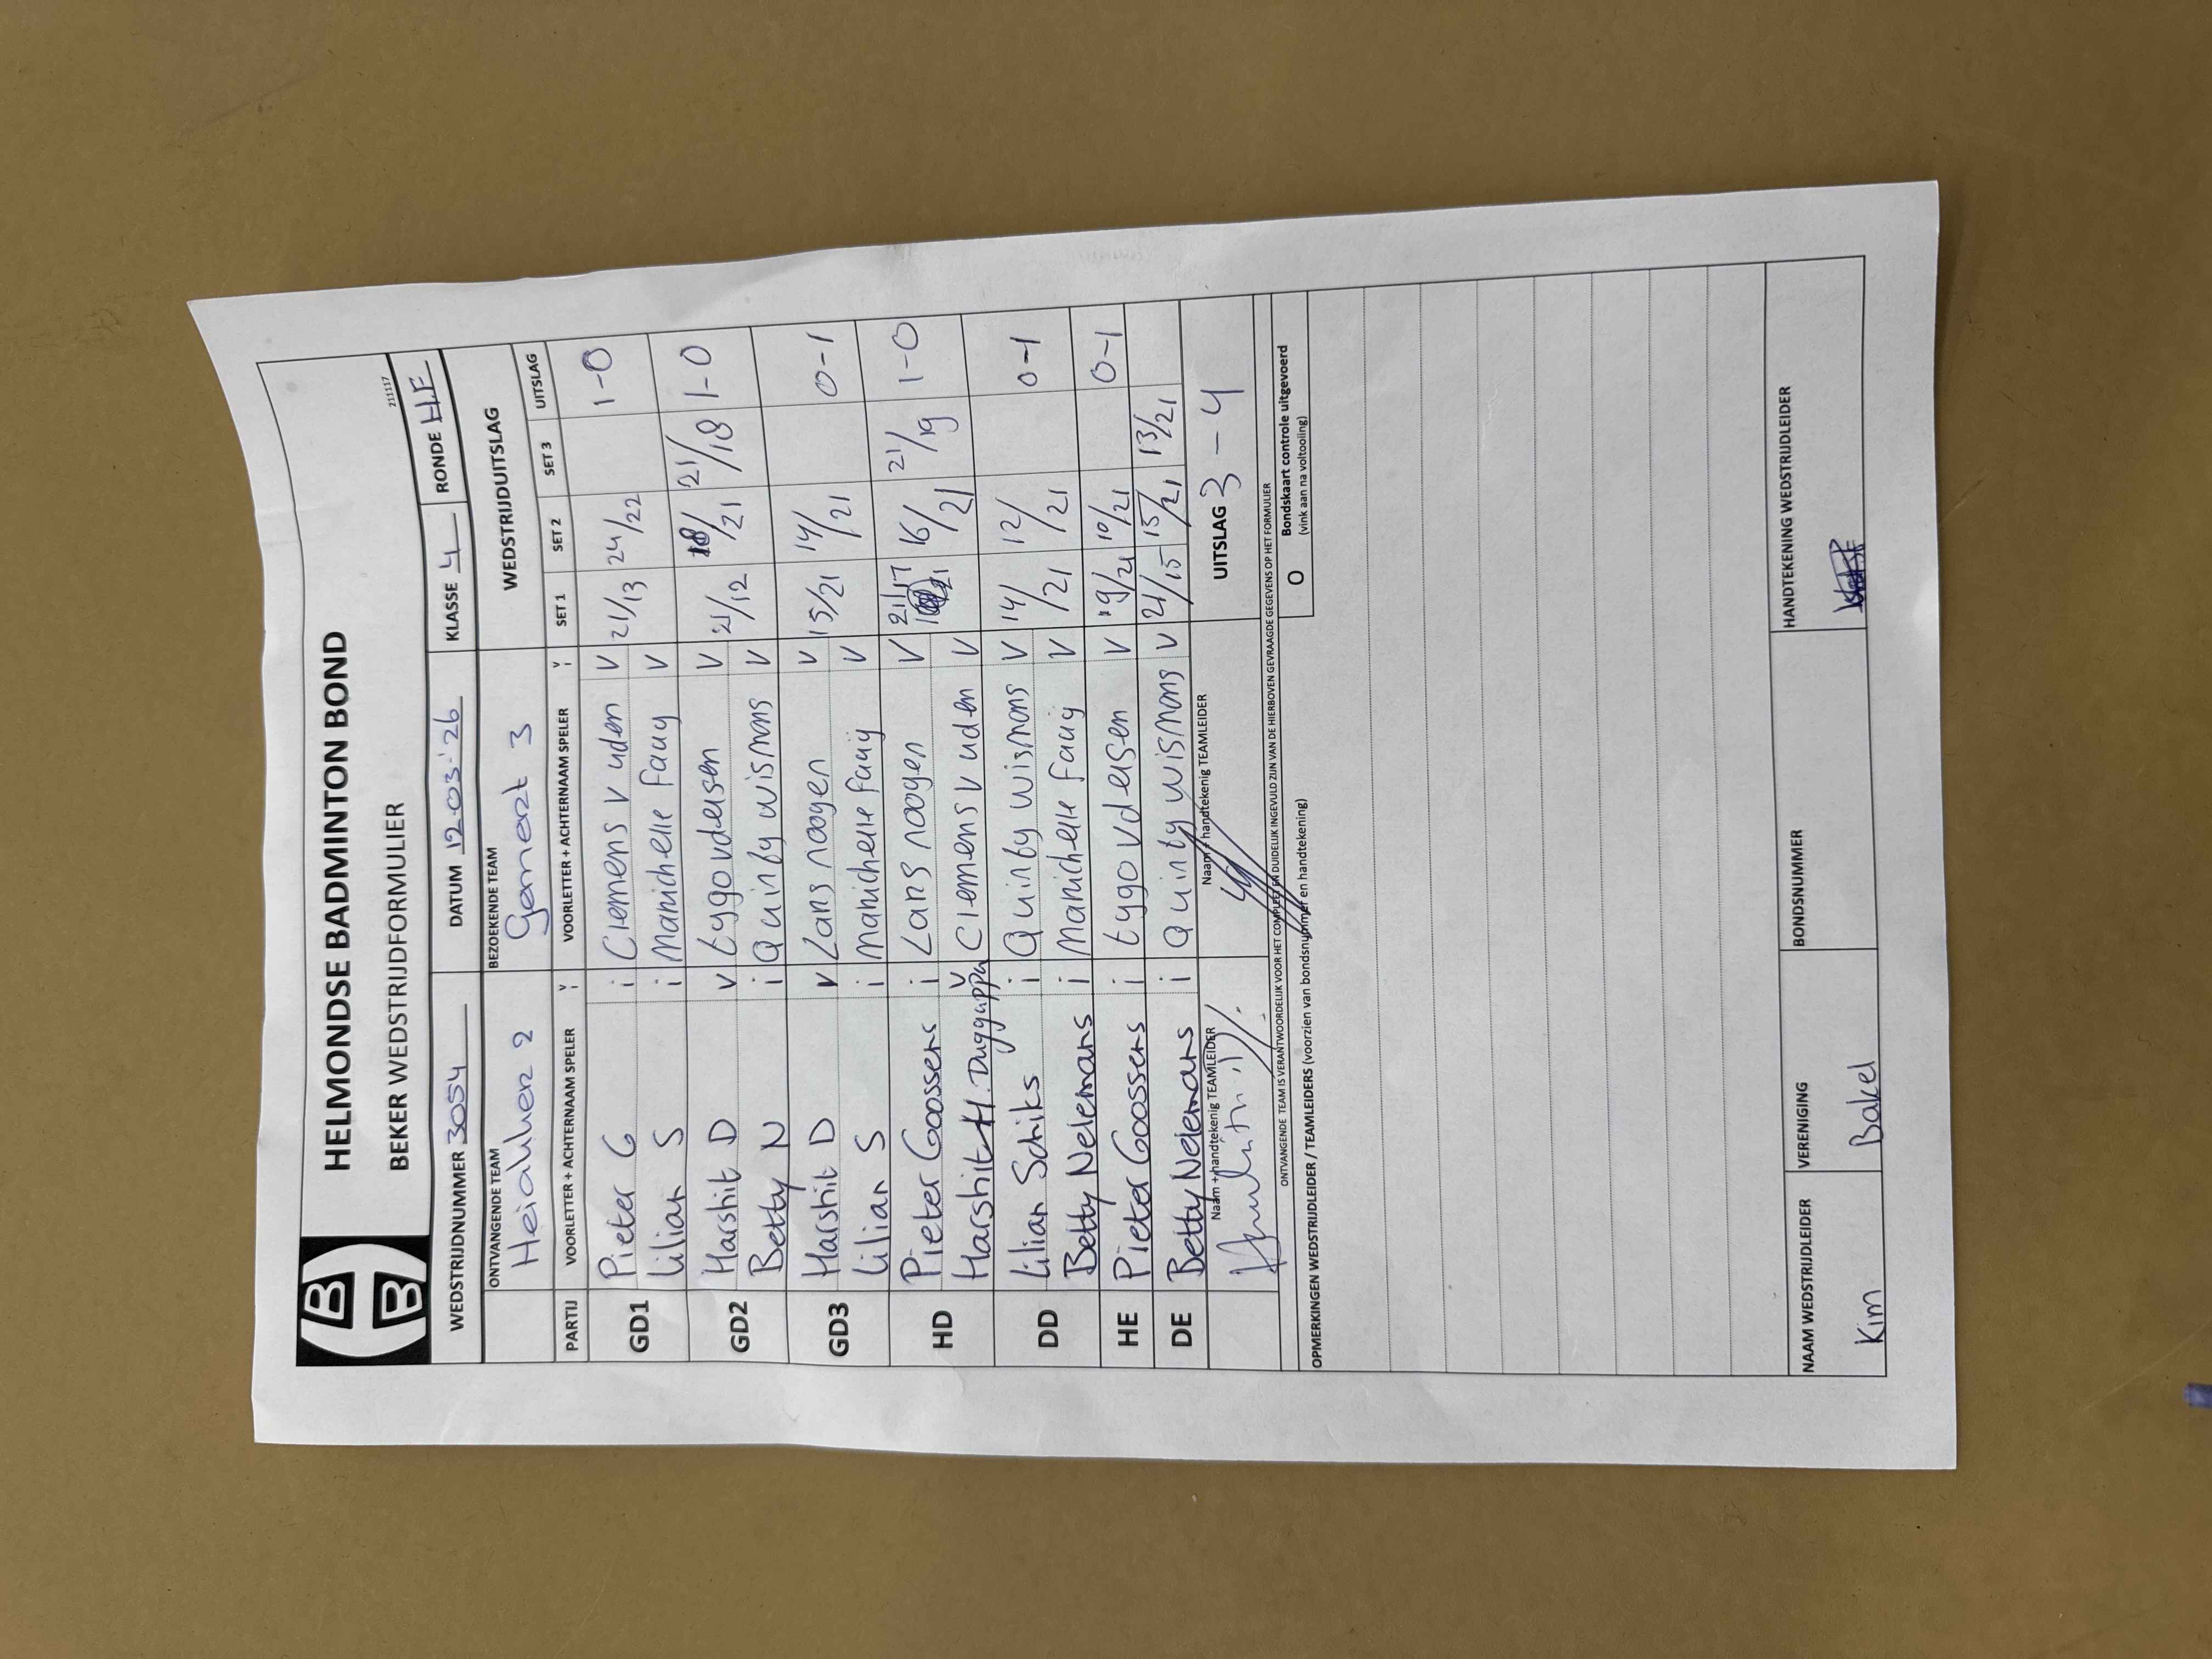 HELMONDSE BADMINTON BOND
BEKER WEDSTRIJDFORMULIER
211117
WEDSTRIJDNUMMER 3054 DATUM 12-03-'26 KLASSE 4 RONDE H.F
ONTVANGENDE TEAM BEZOEKENDE TEAM WEDSTRIJDUITSLAG
Gemert 3
PARTIJ VOORLETTER + ACHTERNAAM SPELER V I VOORLETTER + ACHTERNAAM SPELER V I SET 1 SET 2 SET 3 UITSLAG
GD1 Pieter G i Clemens v uden V 21/13 24/22 1-0
Lilian S i Manichelle Faaij V
GD2 Harshit D V tygo vdelsen V 21/12 18/21 21/18 1-0
Betty N i Quinty wismans V
GD3 Harshit D V Lans rooyen V 15/21 14/21 0-1
Lilian S i Manichelle faaij V
HD Pieter Goossens i Lans rooyen V 21/17 16/21 21/19 1-0
Harshit H. Duggappa V Clemens v uden V
DD Lilian Schiks i Quinty wismans V 14/21 12/21 0-1
Betty Nelemans i Manichelle faaij V
HE Pieter Goossens i tygo vdelsen V 19/21 10/21 0-1
DE Betty Nelemans i Quinty wismans V 21/15 15/21 13/21
Naam + handtekenig TEAMLEIDER Naam + handtekenig TEAMLEIDER UITSLAG 3-4
ONTVANGENDE TEAM IS VERANTWOORDELIJK VOOR HET COMPLEET EN DUIDELIJK INGEVULD ZIJN VAN DE HIERBOVEN GEVRAAGDE GEGEVENS OP HET FORMULIER
OPMERKINGEN WEDSTRIJDLEIDER / TEAMLEIDERS (voorzien van bondsnummer en handtekening)
O Bondskaart controle uitgevoerd
(vink aan na voltooiing)
NAAM WEDSTRIJDLEIDER VERENIGING BONDSNUMMER HANDTEKENING WEDSTRIJDLEIDER
Kim Bakel